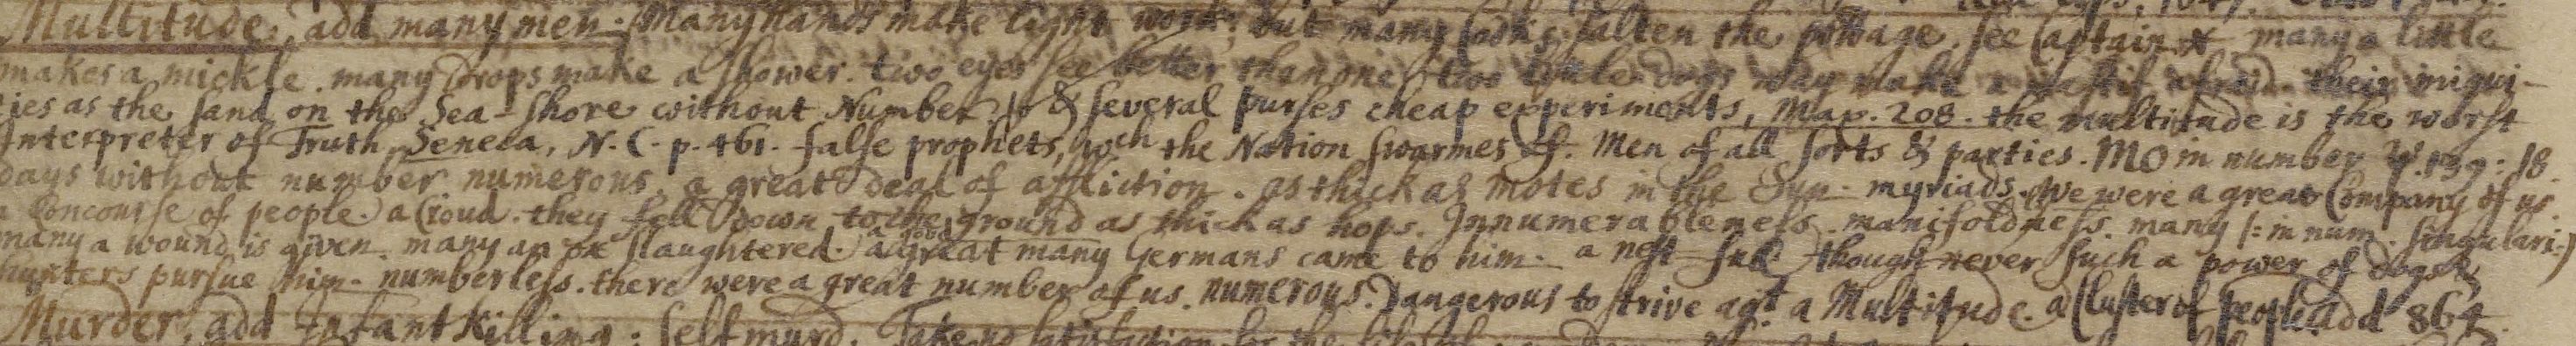 Multitude, add many men. Many hands make light work, but many Cooks salten the pottage. see Captain * many a little
makes a mickle. many drops make a shower. two eyes see better than one. two little dogs may make a mastif afraid. their iniqui-
ties as the sand on the Sea-shore without Number. & several purses cheap experiments, Map. 208. the multitude is the worst
Interpreter of Truth, Seneca, N.C. p. 461. false prophets, wch the Nation swarmes of. Men of all sorts & parties. MO in number Ψ. 139: 18.
days without number. numerous. a great deal of affliction. as thick as motes in the Sun. myriads. We were a great Company of us
a Concourse of people. a Croud. they fell down to the ground as thick as hops. Innumerableness. manifoldness. many /: in num. singulari:)
many a wound is given. many an ox slaughtered. a good great many Germans came to him. a nest full though never such a power of dogs &
hunters pursue him. numberless. there were a great number of us. numerous. Dangerous to strive agt. a Multitude. a Cluster of people. add 864.
Murder, add Infant killing: self murd. Take no satisfaction for the life of